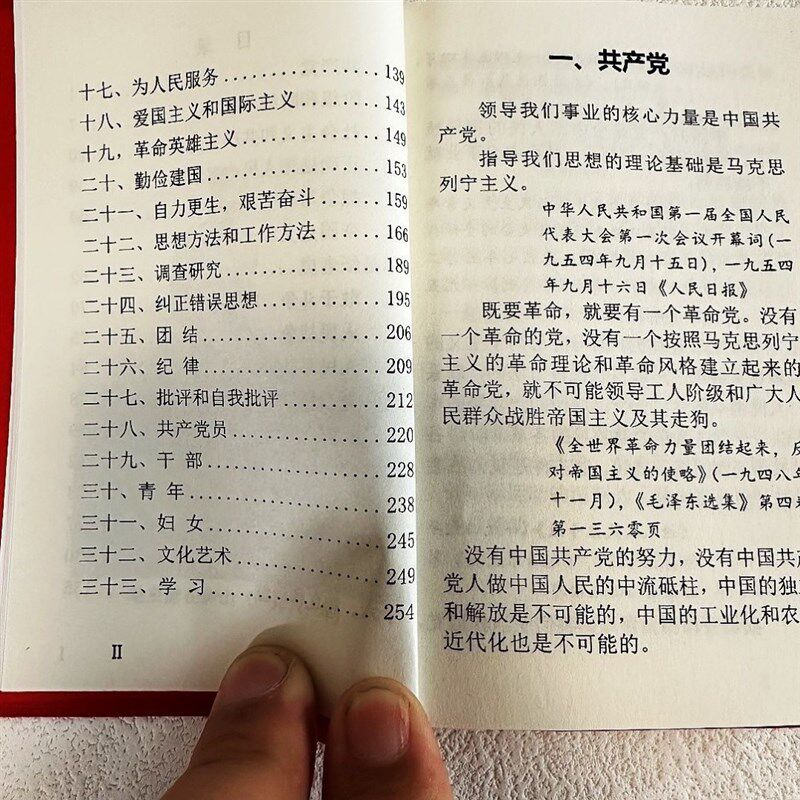 十七、为人民服务 139
十八、爱国主义和国际主义 143
十九，革命英雄主义 149
二十、勤俭建国 153
二十一、自力更生，艰苦奋斗 159
二十二、思想方法和工作方法 166
二十三、调查研究 189
二十四、纠正错误思想 195
二十五、团 结 206
二十六、纪 律 209
二十七、批评和自我批评 212
二十八、共产党员 220
二十九、干 部 228
三十、青 年 238
三十一、妇 女 245
三十二、文化艺术 249
三十三、学 习 254
II
一、共产党
领导我们事业的核心力量是中国共
产党。
指导我们思想的理论基础是马克思
列宁主义。
中华人民共和国第一届全国人民
代表大会第一次会议开幕词(一
九五四年九月十五日)，一九五四
年九月十六日《人民日报》
既要革命，就要有一个革命党。没有
一个革命的党，没有一个按照马克思列宁
主义的革命理论和革命风格建立起来的
革命党，就不可能领导工人阶级和广大人
民群众战胜帝国主义及其走狗。
《全世界革命力量团结起来，
对帝国主义的使略》(一九四八年
十一月)，《毛泽东选集》第四
第一三六零页
没有中国共产党的努力，没有中国共
党人做中国人民的中流砥柱，中国的独
和解放是不可能的，中国的工业化和农
近代化也是不可能的。